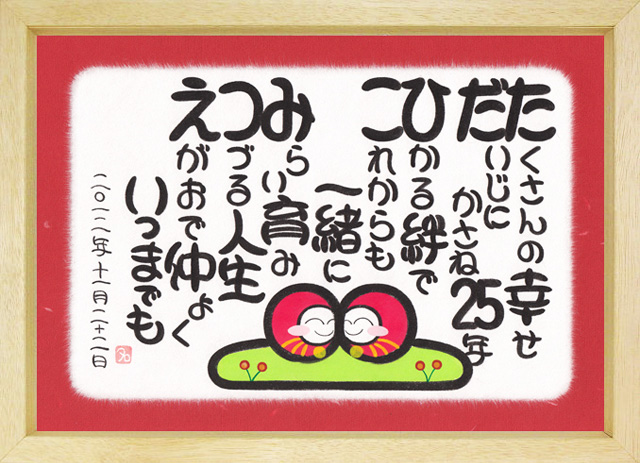 たくさんの幸せ
だいじに
かさね25年
ひかる絆で
これからも
一緒に
みらい育み
つづる人生
えがおで仲よく
いつまでも
二〇二二年十一月二十二日